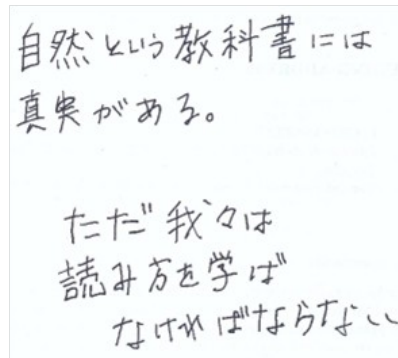 自然という教科書には
真実がある。
ただ我々は
読み方を学ば
なければならない